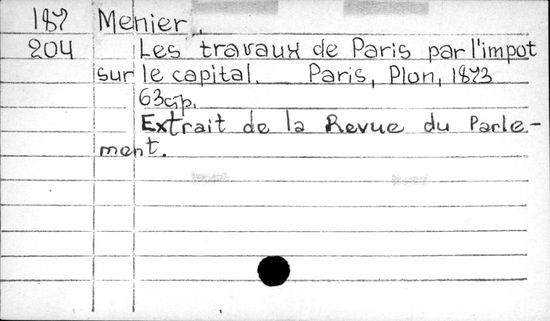 187 Menier.
204 Les travaux de Paris par l'impot
sur le capital. Paris, Plon, 1873
63 p.
Extrait de la Revue du Parle-
ment.